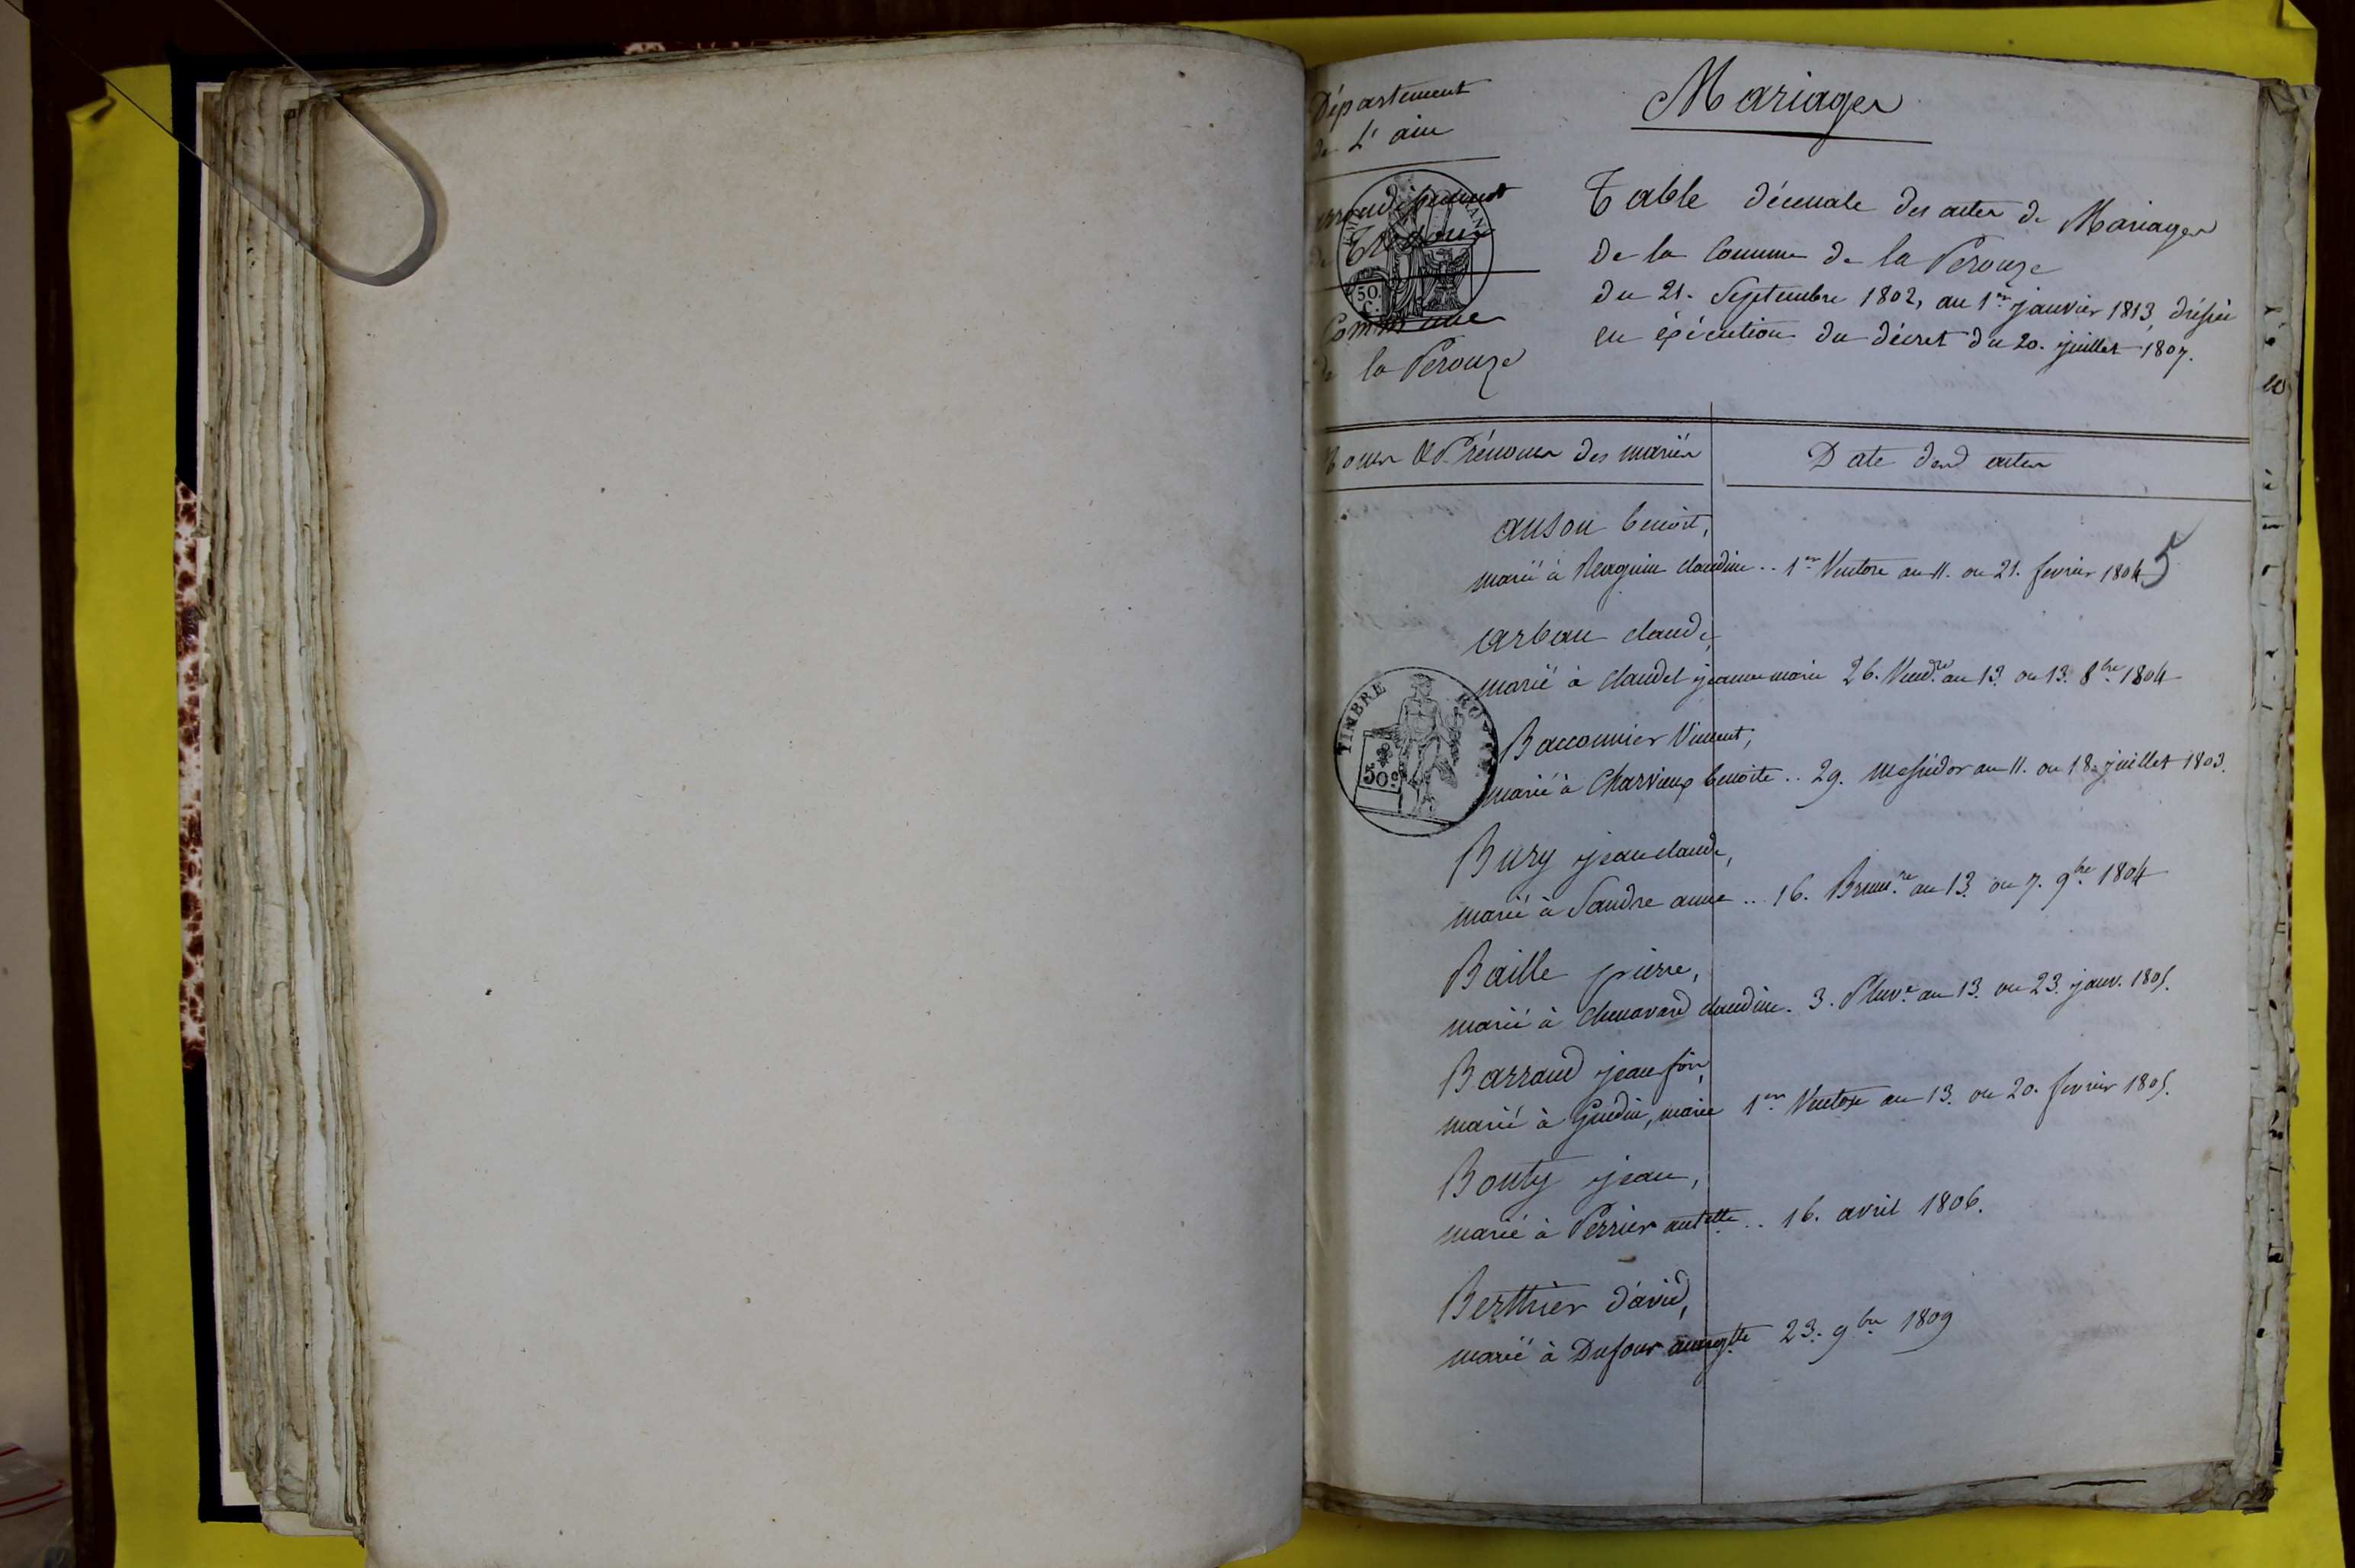 Département
de L'ain
arrondissement
de Trévoux
Commune
de la Perouze
Mariages
Table décennale des actes de Mariages
de la Commune de la Perouze
du 21. Septembre 1802, au 1er janvier 1813, dréssée
en éxécution du décret du 20. juillet 1807.
Noms & Prénoms des mariés
Date desd actes
anson benoit,
marié à claudine .. 1er Ventose an 11. ou 21. fevrier 1804 5
Carbau claude,
marié à claudel jeanne marie 26. Vend.re an 13. ou 13. 8bre 1804
TIMBRE ROYAL
50c
Baconnier Vincent,
marié à Charvieux benoite .. 29. messidor an 11. ou 18. juillet 1803.
Bury jean claude,
marié à Sandre anne .. 16. Brum.re an 13. ou 7. 9bre 1804
Baille pierre,
marié à chenavard claudine. 3. Pluv.e an 13. ou 23. janv. 1805.
Barraud jean fçois,
marié à Guedin, marie 1er Ventose an 13. ou 20. fevrier 1805.
Bouty jean,
marié à Perrier antette .. 16. avril 1806.
Berthier david,
marié à Dufour 23. 9bre 1809
50.
C.